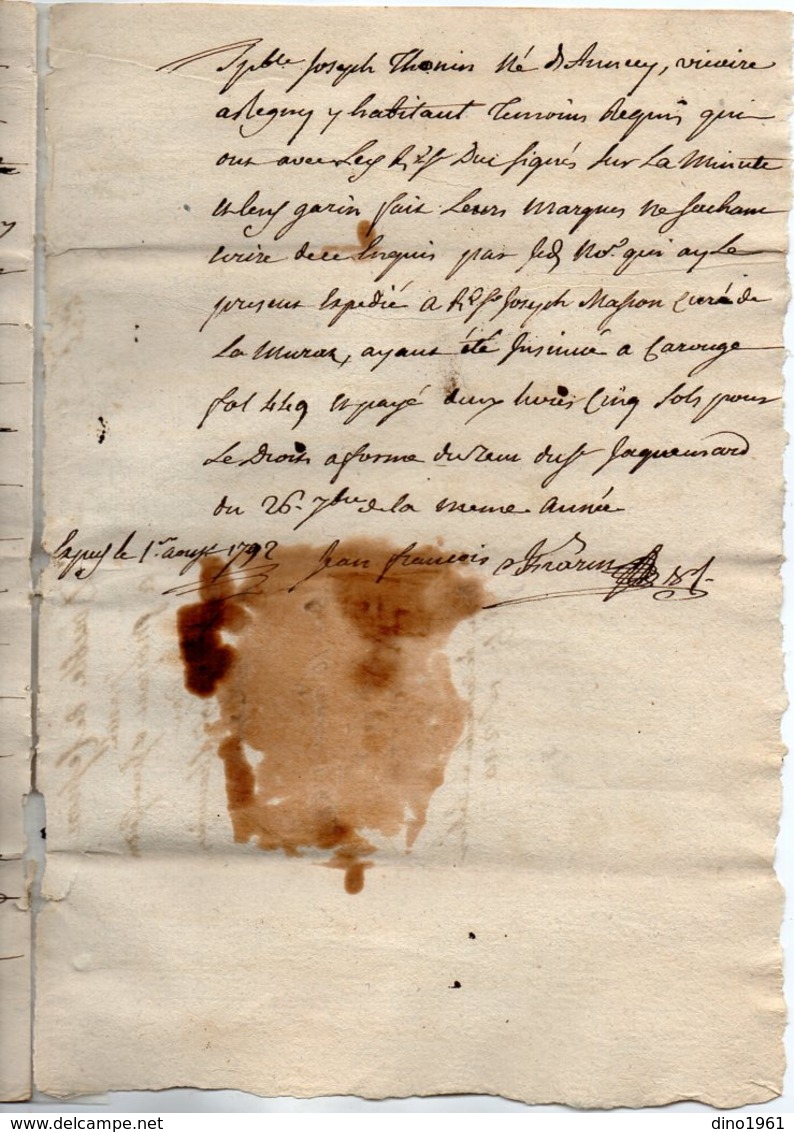 Spble Joseph Thonin né d'Annecy, vicaire
a Regny y habitant Temoins Requis qui
ont avec Led R. Sr Duc signés sur La Minute
et led garin fait Leurs Marques ne sachant
ecrire de ce Enquis par Je d. Nore qui ay Le
present Expedié a Rd Sr Joseph Masson Curé de
La Muraz, ayant été Insinué a Carouge
fol 449 et payé deux livres Cinq sols pour
Le Droit a forme du recu du Sr Jaquemard
du 26 7bre de la meme Année
le 1er 1792 Jean françois
dino1961